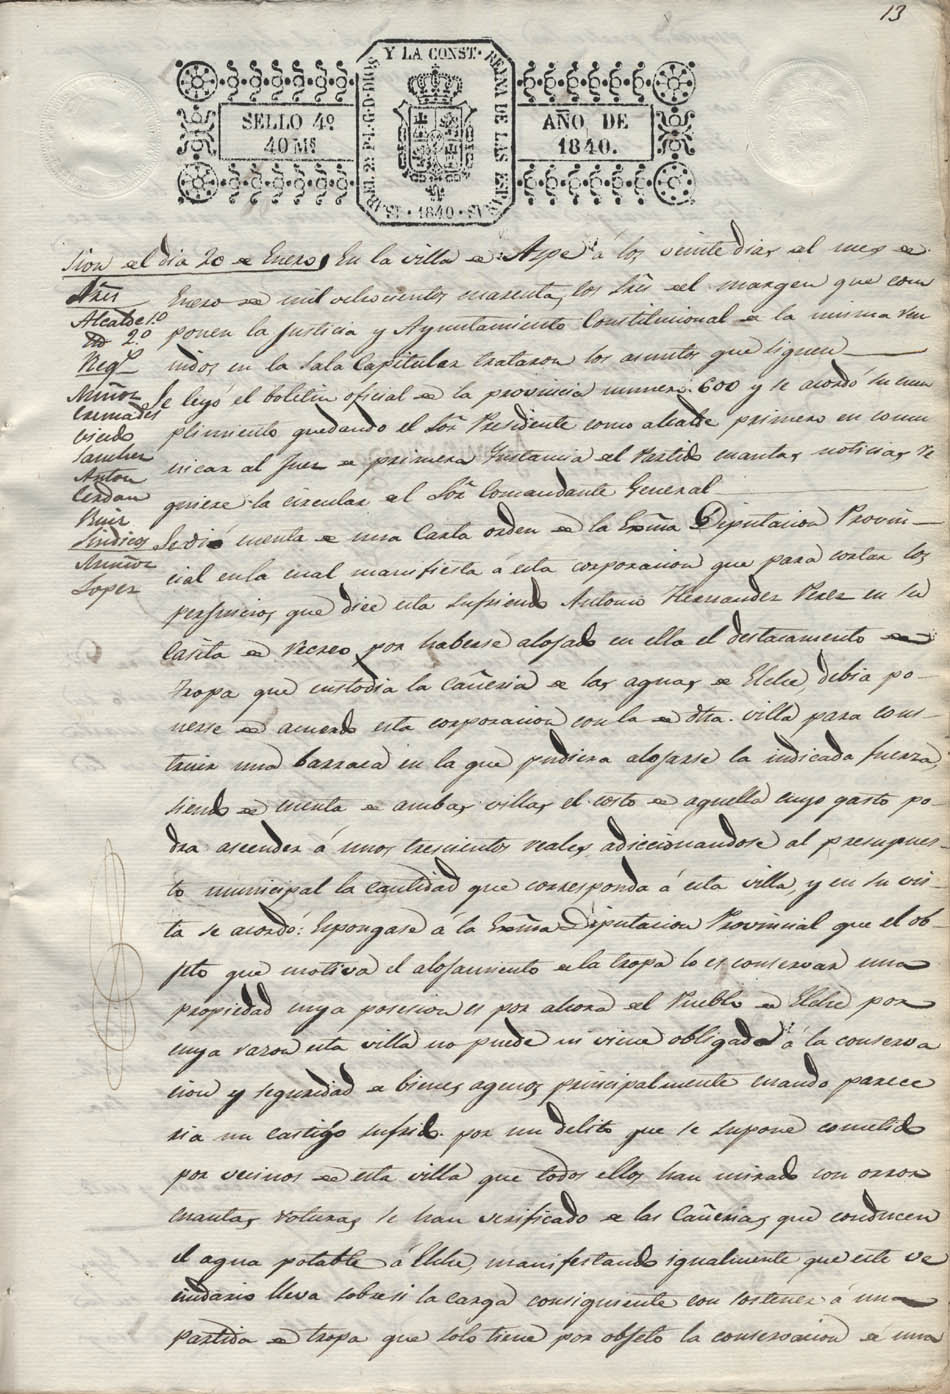 13
ISABEL 2ª P.L.G.D.DIOS Y LA CONST. REYNA DE LAS ESPAÑAS
SELLO 4º
40 Ms
AÑO DE
1840.
1840
Sion del dia 20 de Enero
Sres
Alcalde 1.º
Id 2.º
Regs
Muñoz
Cremades
Vicedo
Sanchez
Anton
Cerdan
Ruiz
Sindicos
Muñoz
Lopez
En la villa de Aspe á los veinte dias del mes de
Enero de mil ochocientos cuarenta, los Sres del margen que com
ponen la Justicia y Ayuntamiento Constitucional de la misma reu
nidos en la Sala Capitular trataron los asuntos que siguen
Se leyó el boletin oficial de la provincia numero 600 y se acordó su cum
plimiento quedando el Sor Presidente como alcalde primero en comu
nicar al Juez de primera Instancia del Partido cuantas noticias re
quiere la circular del Sor Comandante General
Se dió cuenta de una Carta orden de la Exma Diputacion Provin-
cial en la cual manifiesta á esta corporacion que para cortar los
perjuicios que dice esta sufriendo Antonio Hernandez Perez en su
Casita de recreo por haberse alojado en ella el destacamento de
tropa que custodia la cañeria de las aguas de Elche, debia po-
nerse de acuerdo esta corporacion con la de dha. villa para cons-
truir una barraca en la que pudiera alojarse la indicada fuerza,
siendo de cuenta de ambas villas el costo de aquella cuyo gasto po-
dra ascender á unos trescientos reales, adiccionandose al presupues-
to municipal la cantidad que corresponda á esta villa, y en su vis-
ta se acordó: Espongase á la Exma Diputacion Provincial que el ob-
jeto que motiva el alojamiento de la tropa lo es conservar una
propiedad cuya posesion es por ahora del Pueblo de Elche por
cuya razon esta villa no puede ni viene obligada á la conserva
cion y seguridad de bienes agenos, principalmente cuando parece
ria un castigo sufrido por un delito que se supone cometido
por vecinos de esta villa que todos ellos han mirado con orror
cuantas roturas se han verificado de las Cañerias, que conducen
el agua potable á Elche, manifestando igualmente que este ve
cindario lleva sobre si la carga consiguiente con sostener á una
partida de tropa que solo tiene por objeto la conservacion de una